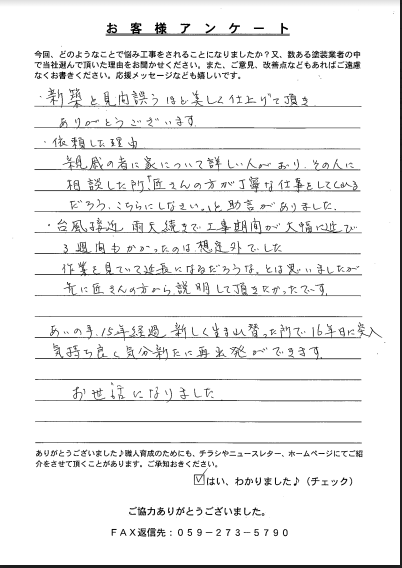 お客様アンケート
今回、どのようなことで悩み工事をされることになりましたか？又、数ある塗装業者の中
で当社選んで頂いた理由をお聞かせください。また、ご意見、改善点などもあればご遠慮
なくお書きください。応援メッセージなども嬉しいです。
・新築と見間誤うほど美しく仕上げて頂き
ありがとうございます
・依頼した理由
親戚の者に家について詳しい人がおり、その人に
相談した所「匠さんの方が丁寧な仕事をしてくれる
だろう、こちらにしなさい。」と助言がありました。
・台風接近 雨天続きで工事期間が大幅に延び
3週間もかかったのは想定外でした
作業を見ていて延長になるだろうな。とは思いましたが
先に匠さんの方から説明して頂きたかったです。
あいの手、15年経過 新しく生まれ替った所で16年目に突入
気持ち良く気分新たに再出発ができます。
お世話になりました
ありがとうございました♪職人育成のためにも、チラシやニュースレター、ホームページにてご紹
介をさせて頂くことがあります。ご承知おきください。
☑はい、わかりました♪（チェック）
ご協力ありがとうございました。
ＦＡＸ返信先：０５９－２７３－５７９０